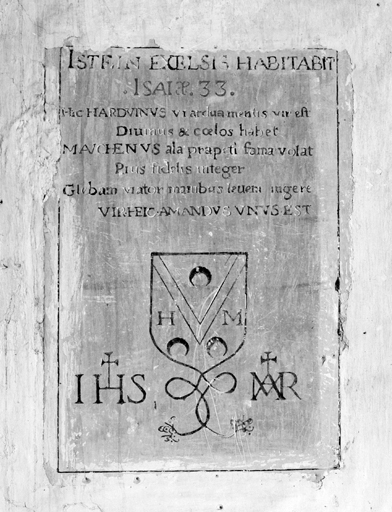 ISTE IN EXELSIS HABITABIT
ISAIÆ 33.
Hic HARDVINVS Vt ardua mentis vir est
Diuinus & cœlos habet
MAICHENVS ala præpeti fama volat
Pius fidelis integer
Globum viator manibus leuem
VIR HEIC AMANDVS VNVS EST
H M
IHS MAR